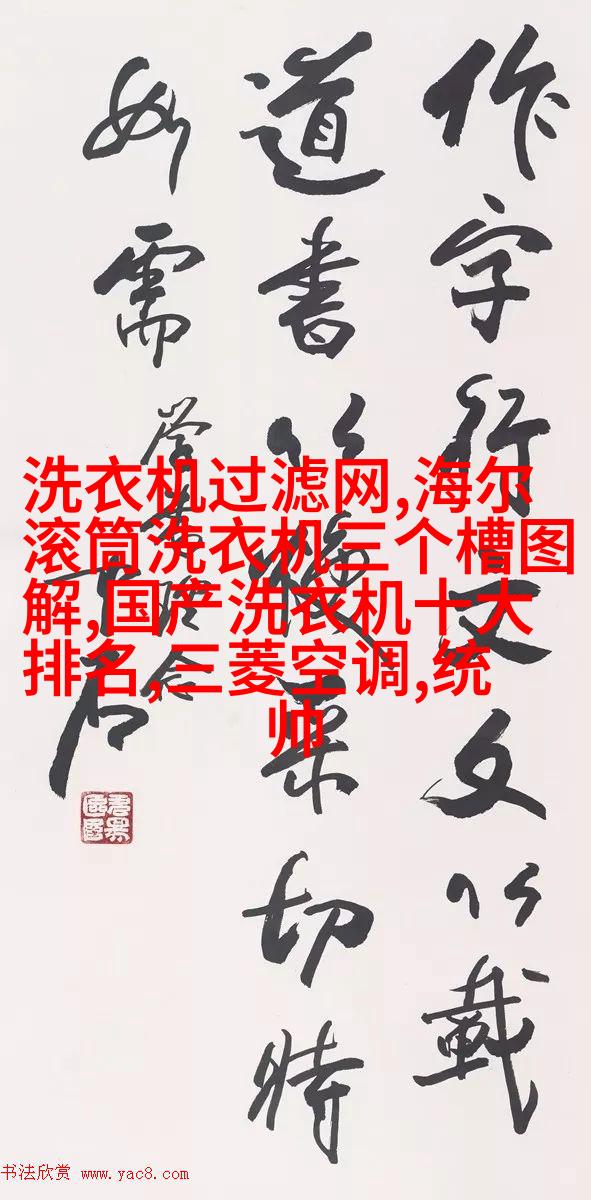 作字行文文以載
道書以采切時
如需
洗衣机过滤网,海尔
滚筒洗衣机三个槽图
解,国产洗衣机十大
排名,三菱空调,统
帅
书法欣赏 www.yac8.com